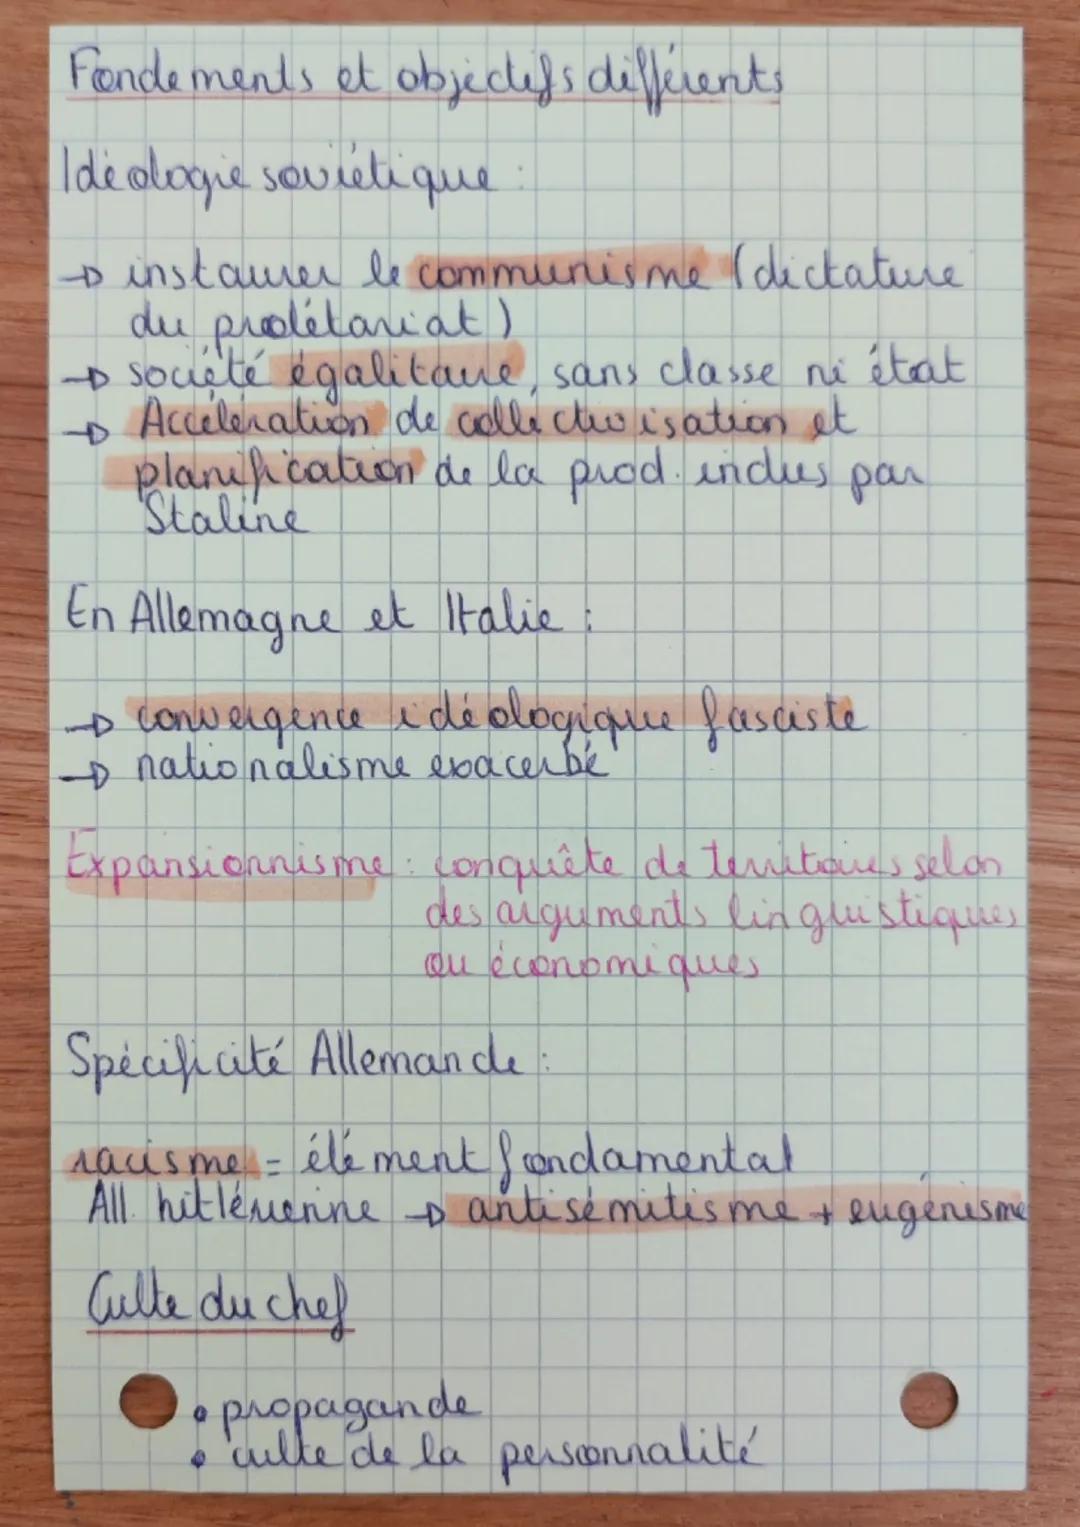 Fondements et objectifs différents
Idéologie soviétique :
→ instaurer le communisme (dictature
du prolétariat)
→ société égalitaire, sans classe ni état
→ Accélération de collectivisation et
planification de la prod. indus par
Staline
En Allemagne et Italie :
→ convergence idéologique fasciste
→ nationalisme exacerbé
Expansionnisme : conquête de territoires selon
des arguments linguistiques
ou économiques
Spécificité Allemande :
racisme = élément fondamental
All. hitlérienne → antisémitisme + eugénisme
Culte du chef
• propagande
• culte de la personnalité